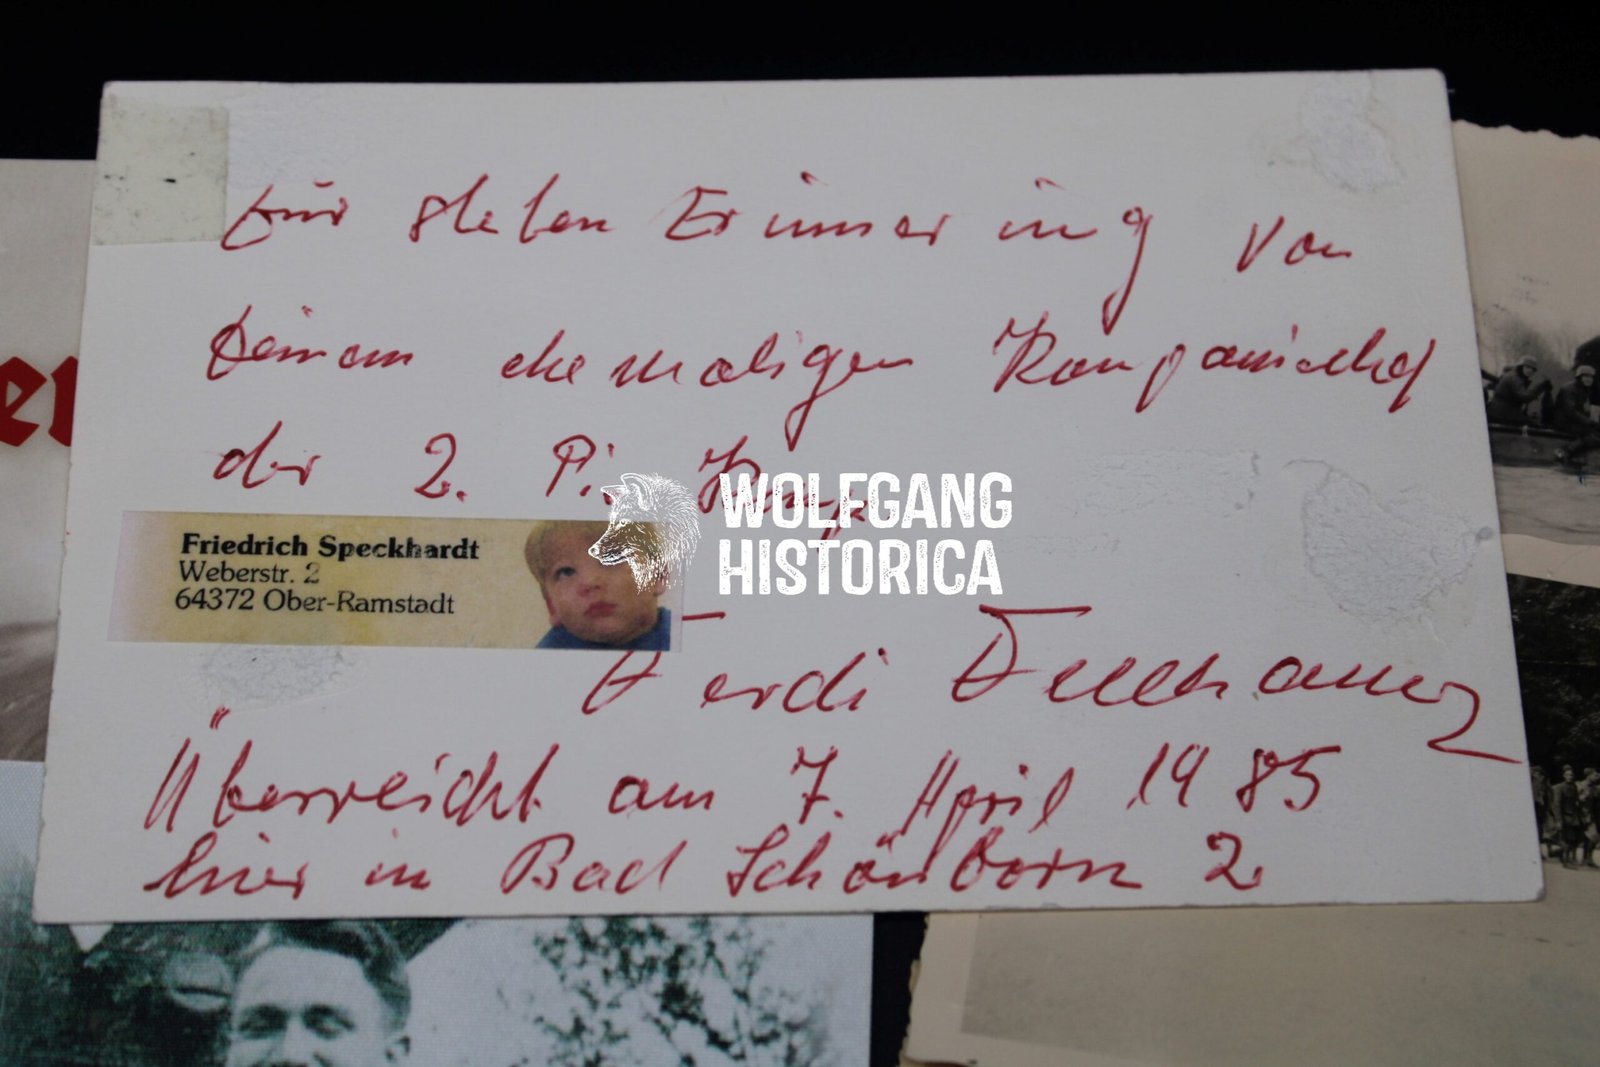 Zur steten Erinnerung von
Deinem ehemaligen Kompaniechef
der 2. Pi. Komp.
WOLFGANG
HISTORICA
Friedrich Speckhardt
Weberstr. 2
64372 Ober-Ramstadt
Ferdi
Überreicht am 7. April 1985
hier in Bad Schönborn 2
er